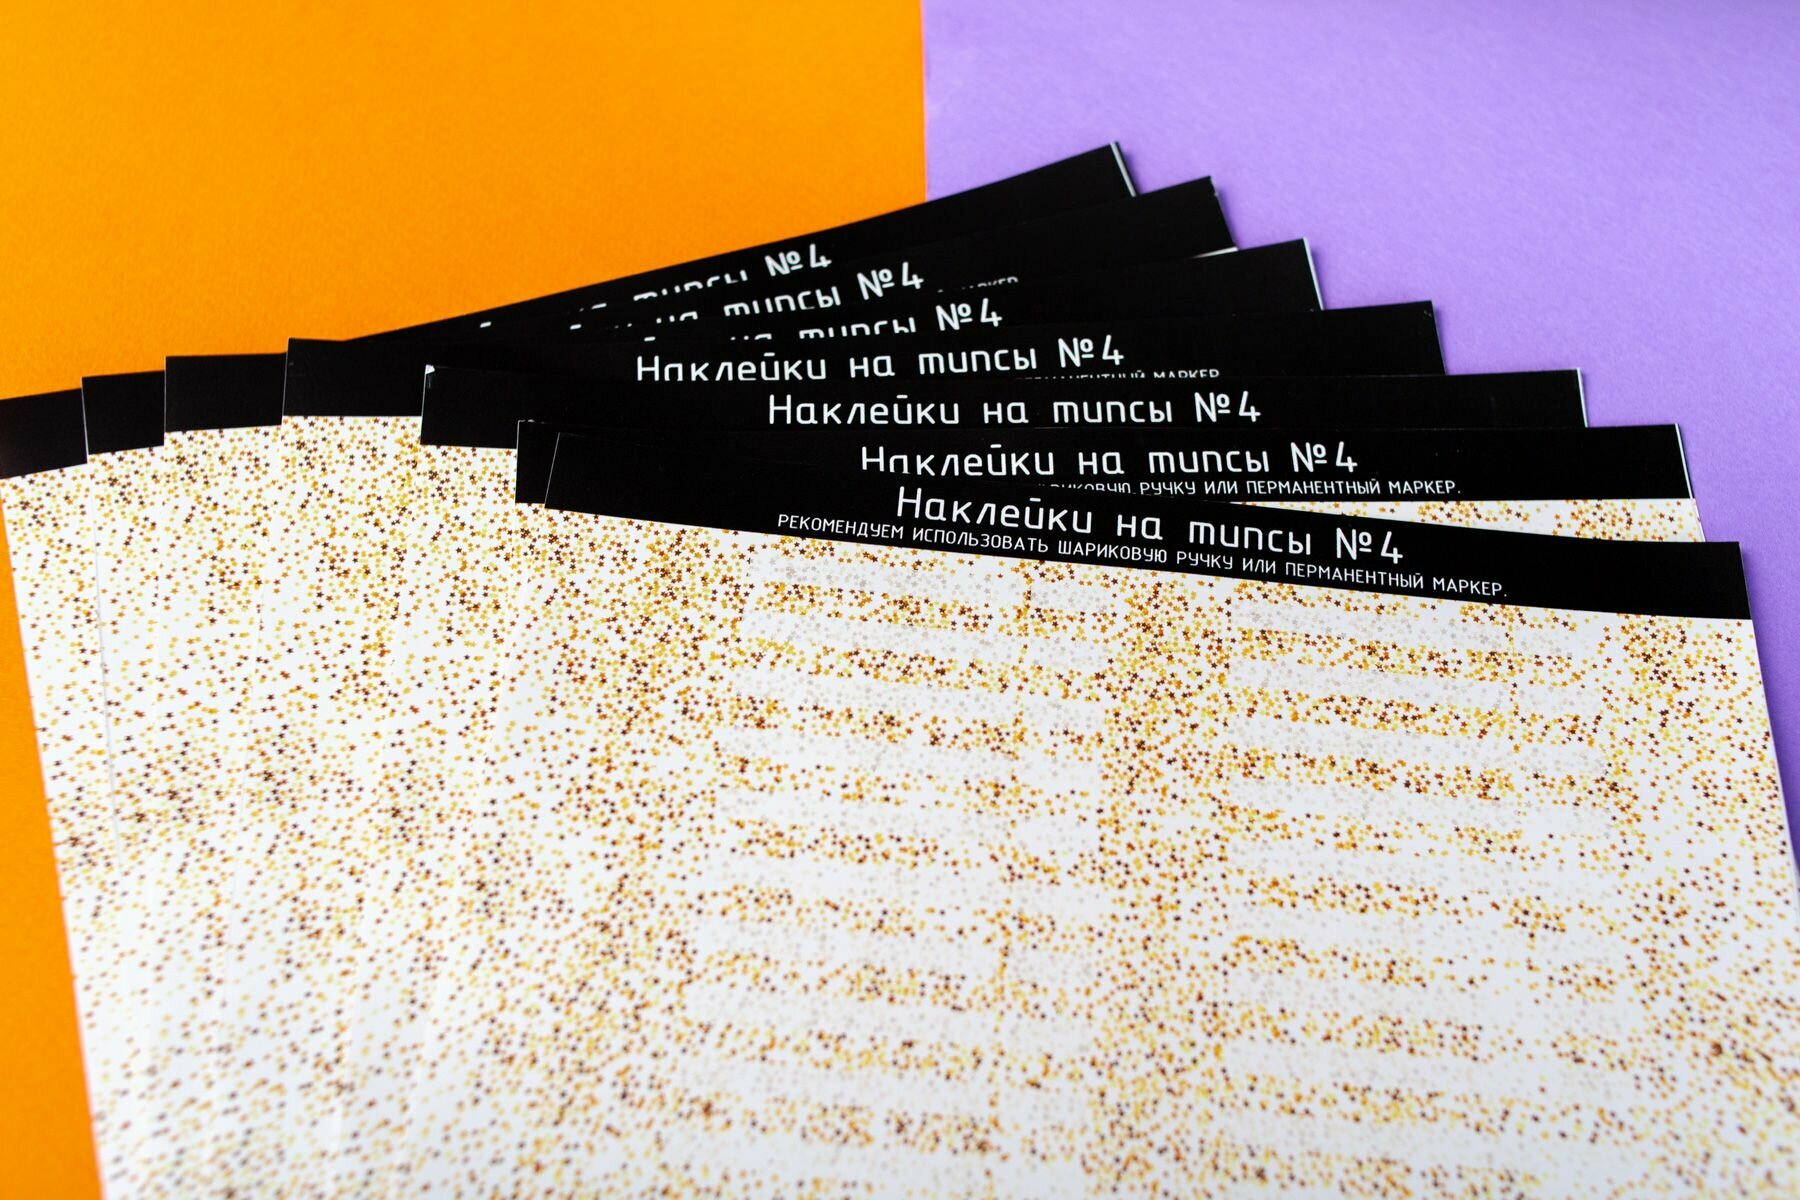 №4
типсы №4
типсы №4
Наклейки на типсы №4
МАРКЕР.
Наклейки на типсы №4
Наклейки на типсы №4
РУЧКУ ИЛИ ПЕРМАНЕНТНЫЙ МАРКЕР.
Наклейки на типсы №4
РЕКОМЕНДУЕМ ИСПОЛЬЗОВАТЬ ШАРИКОВУЮ РУЧКУ ИЛИ ПЕРМАНЕНТНЫЙ МАРКЕР.